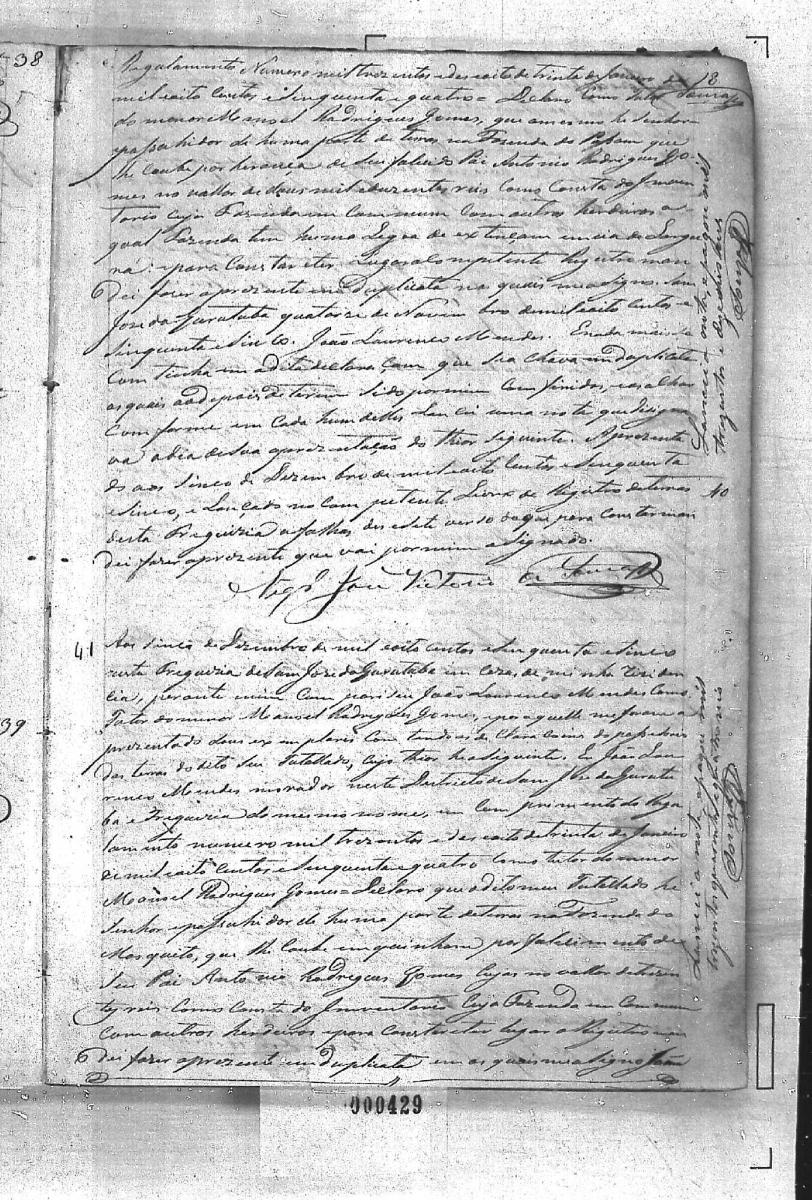 38
18
Souza
Regulamento Numero mil trezentos e des oito de trinta de Janeiro de
mil oito centos e Sinquenta e quatro = Declaro Como Tutor
do menor Manoel Rodrigues Gomes, que o mesmo he Senhor e
possuhidor de huma parte de terras na Fazenda do
lhe Coube por herança de Seu falecido Pai Antonio Rodrigues Go
mes no vallor de dous mil e duzentos reis Como Consta do Inven
tario Cuja Fazenda em Commum Com outros herdeiros a
qual Fazenda tem huma Legoa de extenção e meia de Largu
ra: e para Constar e ter Lugar o Competente Registro man
dei fazer o prezente em duplicata na quais me asigno. Sam
Jose do Garatuba quatorze de Novembro de mil oito centos e
Sinquenta e Sinco. João Laurenco Mendes. E nada mais se
Continha em a dita declaraçam que Se achava em duplicata
as quais ao depois de terem Sido por mim Conferidos, e as achar
Conforme em Cada hum delles Lancei uma note que disigna
va a dia de Sua aprezentação do thior Siguinte. Aprezenta
do aos Sinco de Dezembro de mil oito Centos e Sinquenta
e Sinco, e Lançado no Competente Livro de Registro de terras
desta Freguizia a folhas des e sete verso do que para Constar man
dei fazer o prezente que vai por mim asignado.
Vigr.º Jose Victorio de Souza
Lancei a note, e pagou mil
trezentos e
Souza
40
41
Aos Sinco de Dezembro de mil oito centos e Sinquenta e Sinco
nesta Freguizia de Sam Jose do Garatuba em Cazas de minha reziden
cia, perante mim Compariseu João Laurenco Mendes Como
Tutor do menor Manoel Rodrigues Gomes, e por aquelle me foram a
prezentado dous exemplares Contendo as declaracoins do possuhir
das terras do dito Seu Tutellado, cujo thior he a Siguinte. Eu João Lau
renco Mendes morador neste Destricto de Sam Jose do Garatu
ba e Freguizia do mesmo nome, em Comprimento do Regu
lamento numero mil Trezentos e des oito de trinta de Janeiro
de mil oito Centos e Sinquenta e quatro Como tutor do menor
Manoel Rodrigues Gomes = Declaro que o dito meu Tutellado he
Senhor e possuhidor de huma parte de terras na Fazenda do
Mosquito, que lhe Coube em quinham por falecimento de
Seu Pai Antonio Rodrigues Gomes Cujas no vallor de trezen
tos reis Como Consta do Inventario Cuja Fazenda em Commum
Com outros herdeiros e para Constar e ter Lugar o Registro man
dei fazer o prezente em duplicata em as quais me asigno João
Lancei a note, e pagou mil
Souza
39
000429